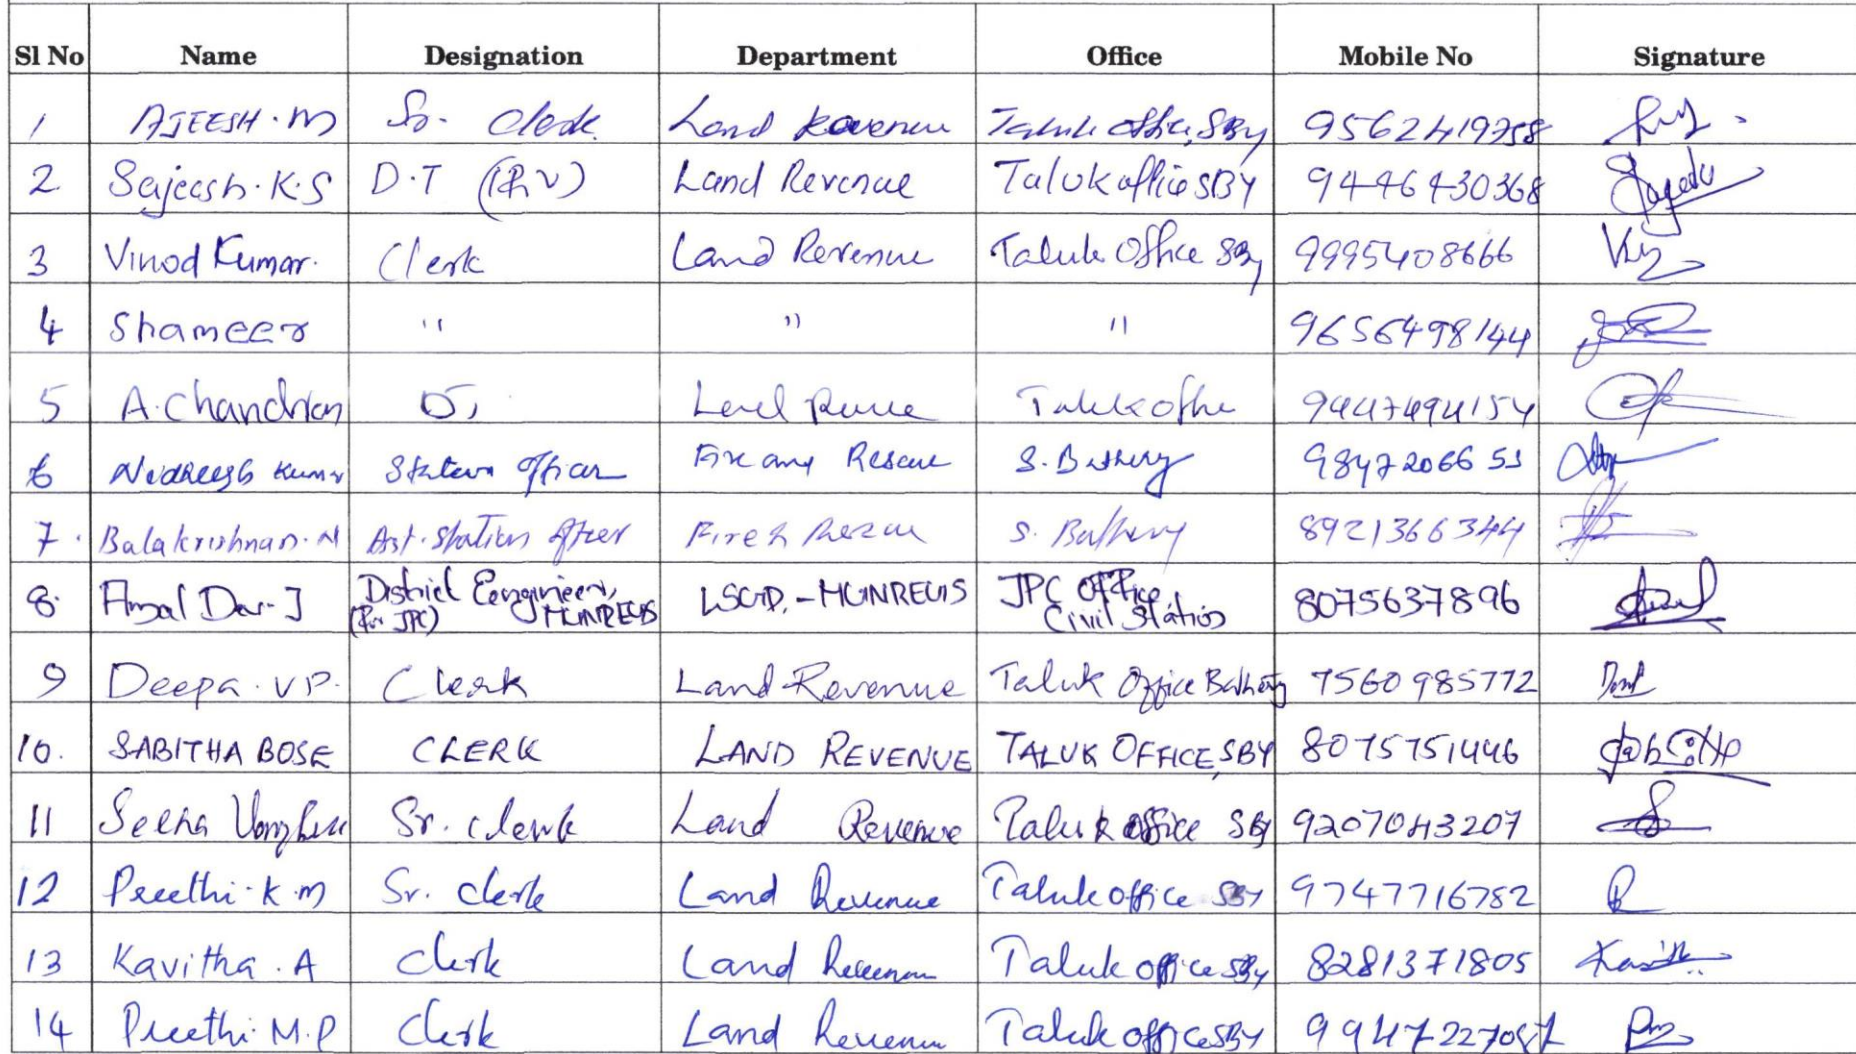 Sl No Name Designation Department Office Mobile No Signature
1 AJEESH. M Sr. Clerk. Land Revenue Taluk office, SBY 9562419758
2 Sajeesh. K.S D.T (RV) Land Revenue Taluk office SBY 9446430368
3 Vinod Kumar. Clerk Land Revenue Taluk Office SBy 9995408666
4 Shameer " " " 9656498144
5 A. Chandran Taluk office 9447494154
6 Kumar Station Officer Fire and Rescue S. Bathery 9847206651
7. Balakrishnan. N Ast. Station Officer Fire & Rescue S. Bathery 8921366344
8. Amal Dev. J District Eengineer, MGNREGS (For JPC) LSGD. - MGNREGS JPC Office Civil Station 8075637896
9 Deepa. V P. Clerk Land Revenue Taluk Office Bathery 7560985772
10. SABITHA BOSE CLERK LAND REVENUE TALUK OFFICE, SBY 8075751446
11 Seena Varghese Sr. clerk Land Revenue Taluk office SBY 9207043207
12 Preethi. K. M Sr. clerk Land Revenue Taluk office SBY 9747716782
13 Kavitha. A Clerk Land Revenue Taluk office SBy 8281371805
14 Preethi. M. P Clerk Land Revenue Taluk office SBY